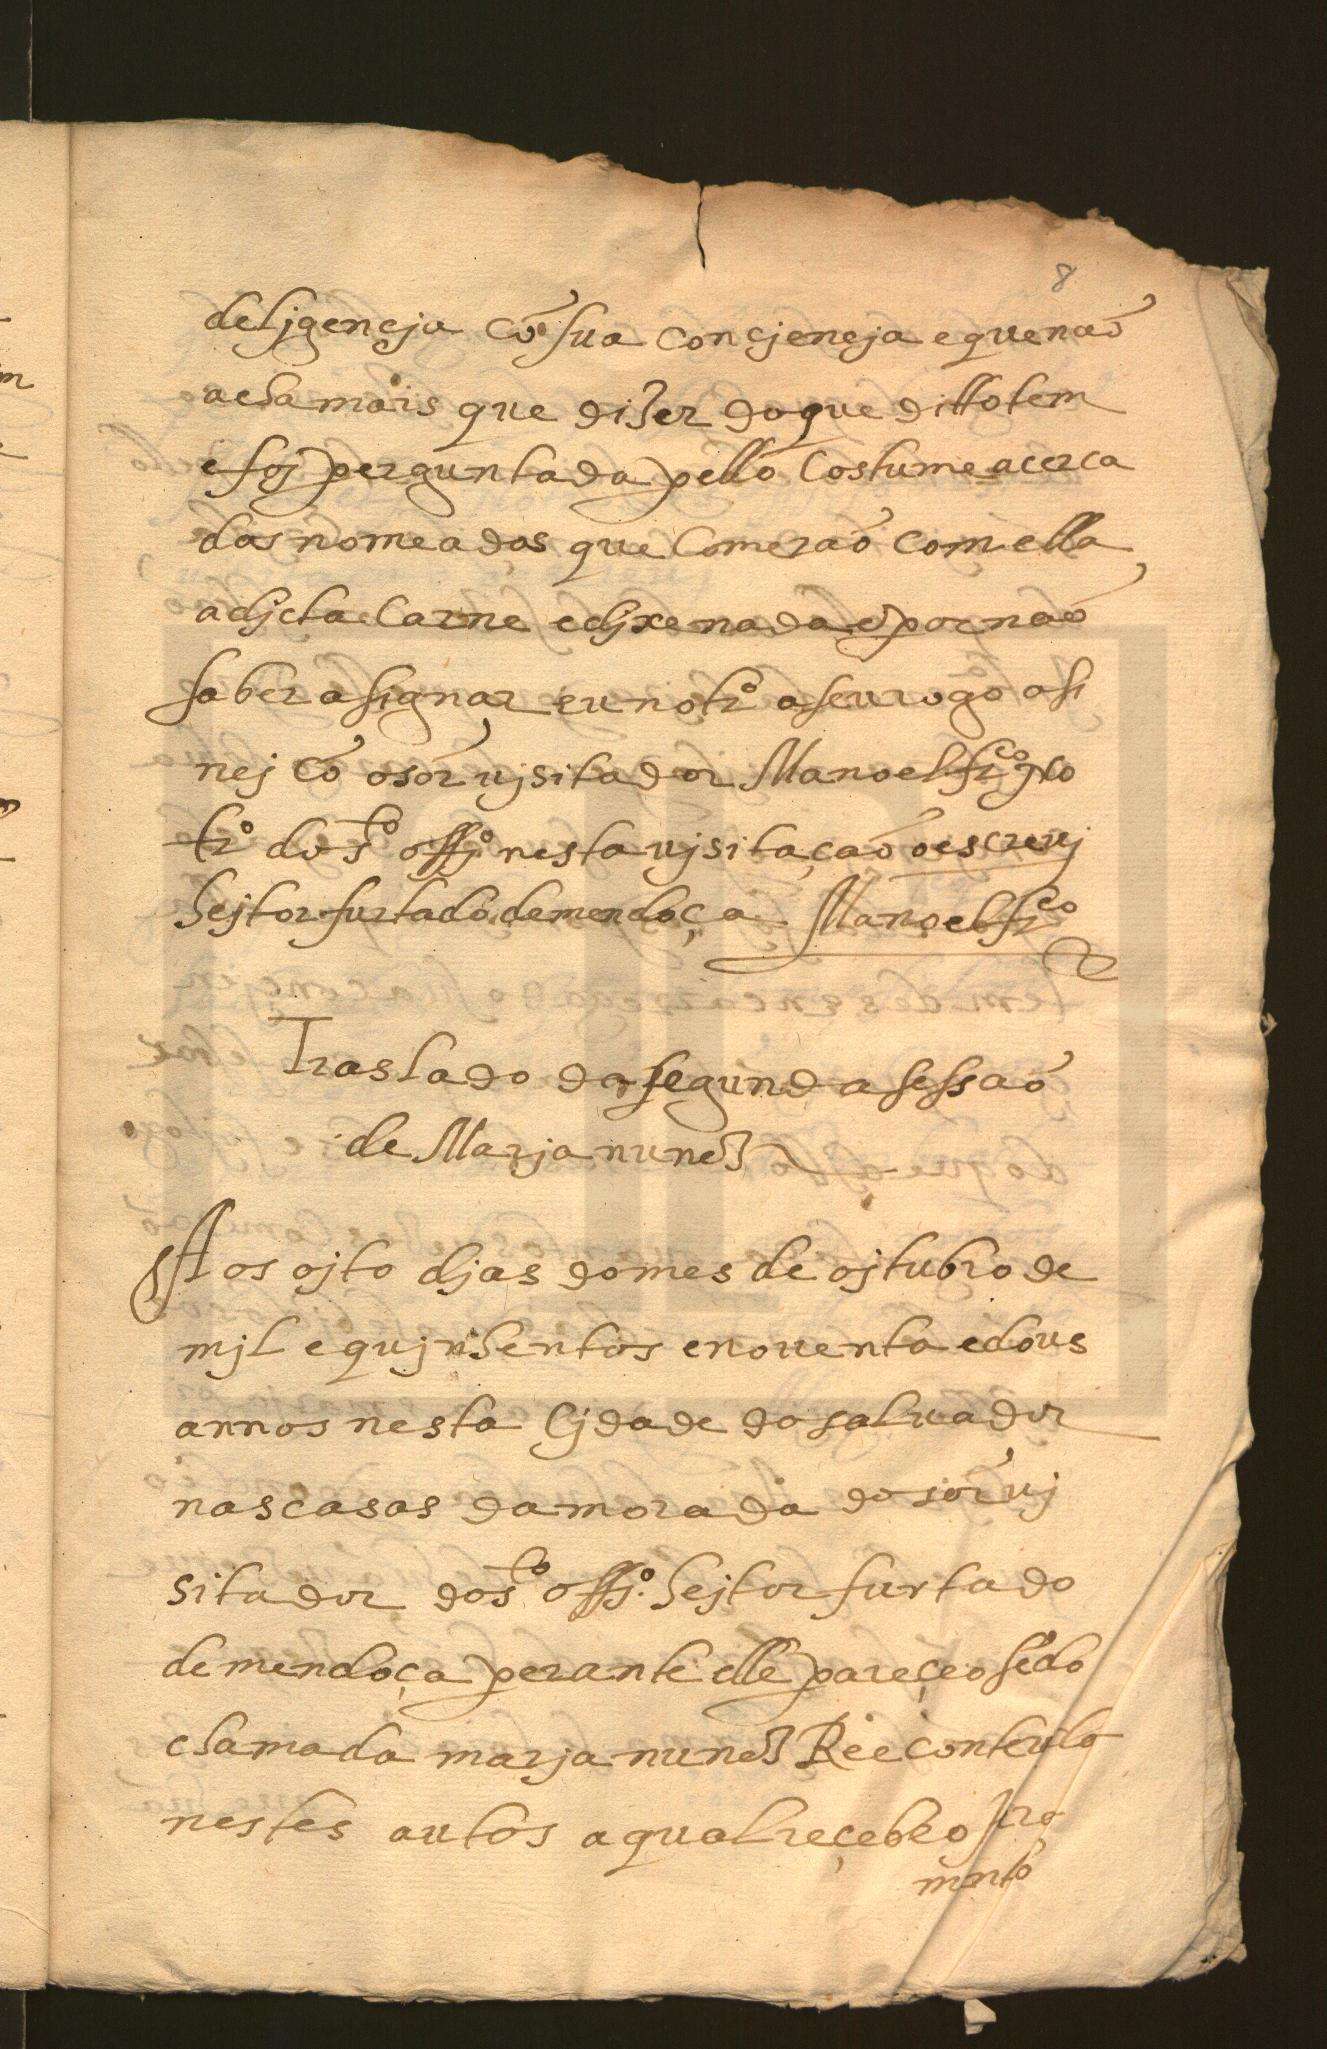 8
deligençja cõ sua conçjençja e que naõ
acha mais que dizer do que ditto tem
e foj perguntada pello costume acerca
das nomeadas que comeraõ com ella
a djcta carne e djxe nada e por naõ
saber asignar eu notrº a seu rogo asi
nej cõ o sõr vjsitador Manoel frco no
trº do sto offjº nesta vjsitaçaõ o escrevj
hejtor furtado de mendoça Manoel frco
Traslado da segunda sessaõ
de Marja nunez
Aos ojto djas do mes de ojtubro de
mjl e qujnhentos e noventa e dous
annos nesta çjdade do salvador
nas casas da morada do sõr vj
sitador do sto offjº hejtor furtado
de mendoça perante elle pareçeo sẽdo
chamada marja nunez Ree conteuda
nestes autos a qual reçebeo jura
mento